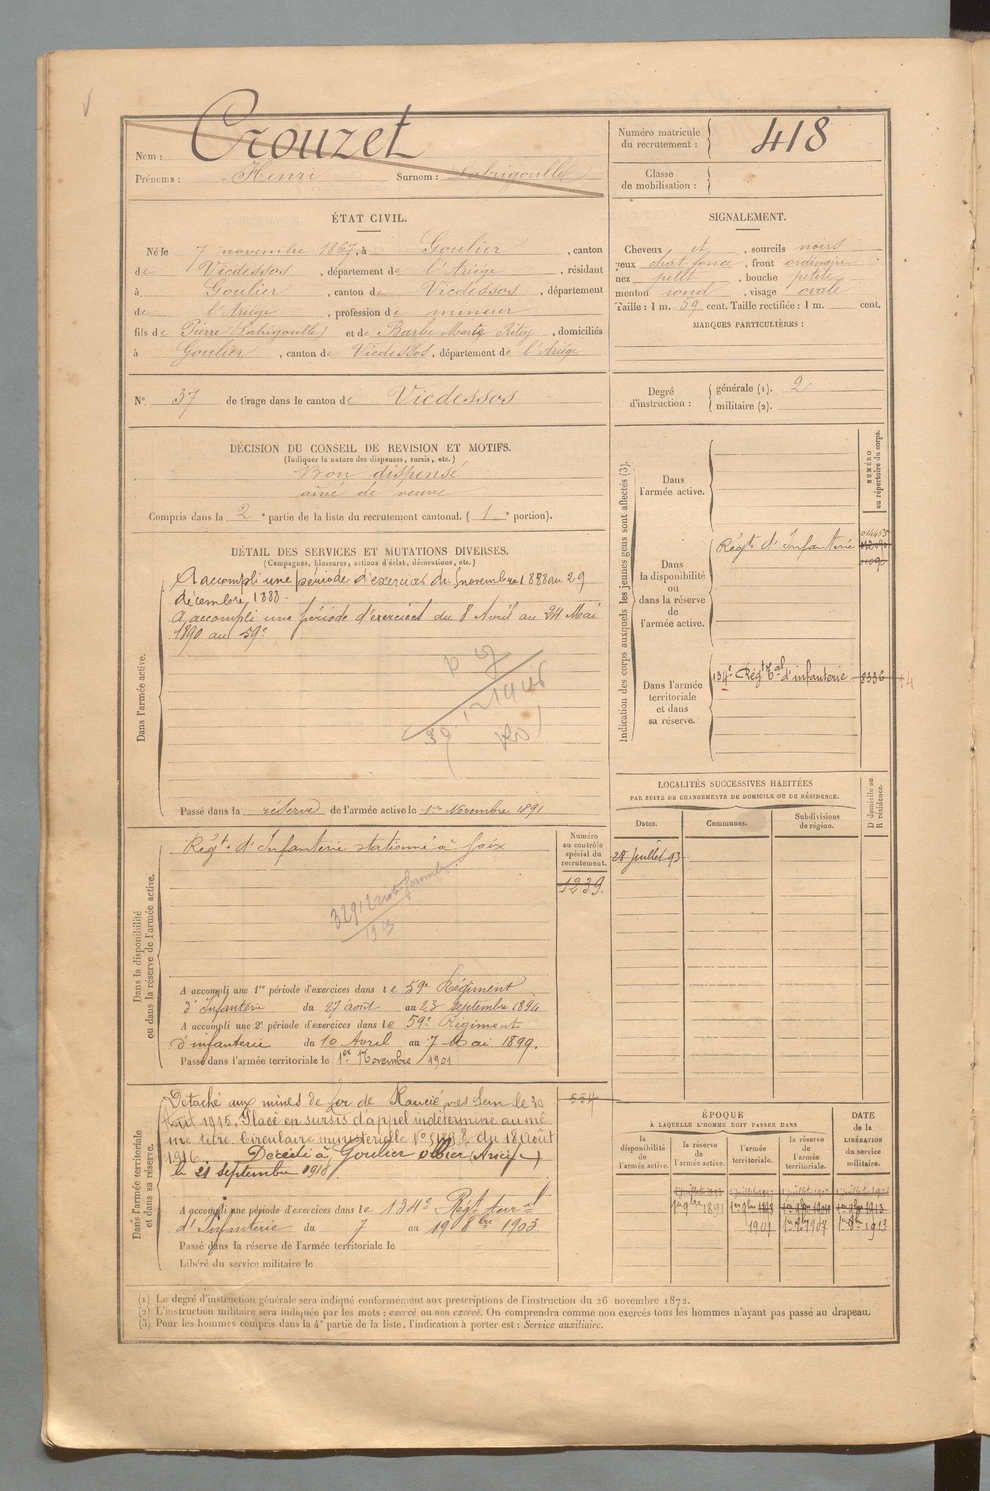 Nom : Crouzet
Prénoms : Henri Surnom : Labrigoulle
Numéro matricule du recrutement : 418
Classe de mobilisation :
ÉTAT CIVIL.
Né le 7 novembre 1867, à Goulier, canton
de Vicdessos, département de l'Ariège, résidant
à Goulier, canton de Vicdessos, département
de l'Ariège, profession de mineur
fils de Pierre (Labrigoulle) et de Barbe Marty, domiciliés
à Goulier, canton de Vicdessos, département de l'Ariège
N° 37 de tirage dans le canton de Vicdessos
SIGNALEMENT.
Cheveux et, sourcils noirs
yeux chat foncé, front ordinaire
nez petit, bouche petite
menton rond, visage ovale
Taille : 1 m. 59 cent. Taille rectifiée : 1 m. cent.
MARQUES PARTICULIÈRES :
Degré d'instruction : générale (1). 2
militaire (2).
DÉCISION DU CONSEIL DE REVISION ET MOTIFS.
(Indiquer la nature des dispenses, sursis, etc.)
Bon dispensé
aîné de veuve
Compris dans la 2e partie de la liste du recrutement cantonal. (1e portion).
DÉTAIL DES SERVICES ET MUTATIONS DIVERSES.
(Campagnes, blessures, actions d'éclat, décorations, etc.)
Dans l'armée active.
A accompli une période d'exercices du novembre 1888 au 29
décembre 1888.
A accompli une période d'exercices du 8 Avril au 24 Mai
1890 au 59e
Passé dans la réserve de l'armée active le 1er Novembre 1891
Indication des corps auxquels les jeunes gens sont affectés (3).
NUMÉRO au répertoire du corps.
Dans l'armée active.
Dans la disponibilité ou dans la réserve de l'armée active.
Régt d'Infanterie
Dans l'armée territoriale et dans sa réserve.
134e Régt Tal d'infanterie 8336
LOCALITÉS SUCCESSIVES HABITÉES
PAR SUITE DE CHANGEMENTS DE DOMICILE OU DE RÉSIDENCE.
D domicile ou R résidence.
Dates. Communes. Subdivisions de région.
28 Juillet 93
Dans la disponibilité ou dans la réserve de l'armée active.
Numéro au contrôle spécial du recrutement.
1239.
Régt d'Infanterie stationné à Foix
1913
A accompli une 1re période d'exercices dans le 59e Régiment
d'Infanterie du 27 août au 23 septembre 1894
A accompli une 2e période d'exercices dans le 59e Régiment
d'infanterie du 10 Avril au 7 Mai 1899.
Passé dans l'armée territoriale le 1er Novembre 1901
Dans l'armée territoriale et dans sa réserve.
564
Détaché aux mines de fer de Rancié, près Sem le 30
Août 1915. Placé en sursis d'appel indéterminé au mê
me titre. Circulaire ministérielle No du 18 Août
1916. Décédé à Goulier Olbier (Ariège)
le 21 septembre 1918
A accompli une période d'exercices dans le 134e Régt terral
d'Infanterie du 7 au 19 8bre 1903
Passé dans la réserve de l'armée territoriale le
Libéré du service militaire le
ÉPOQUE
À LAQUELLE L'HOMME DOIT PASSER DANS
la disponibilité de l'armée active.
la réserve de l'armée active.
l'armée territoriale.
la réserve de l'armée territoriale.
DATE de la LIBÉRATION du service militaire.
1er 9bre 1891
1901
1907
1913
(1) Le degré d'instruction générale sera indiqué conformément aux prescriptions de l'instruction du 26 novembre 1872.
(2) L'instruction militaire sera indiquée par les mots : exercé ou non exercé. On comprendra comme non exercés tous les hommes n'ayant pas passé au drapeau.
(3) Pour les hommes compris dans la 4e partie de la liste, l'indication à porter est : Service auxiliaire.